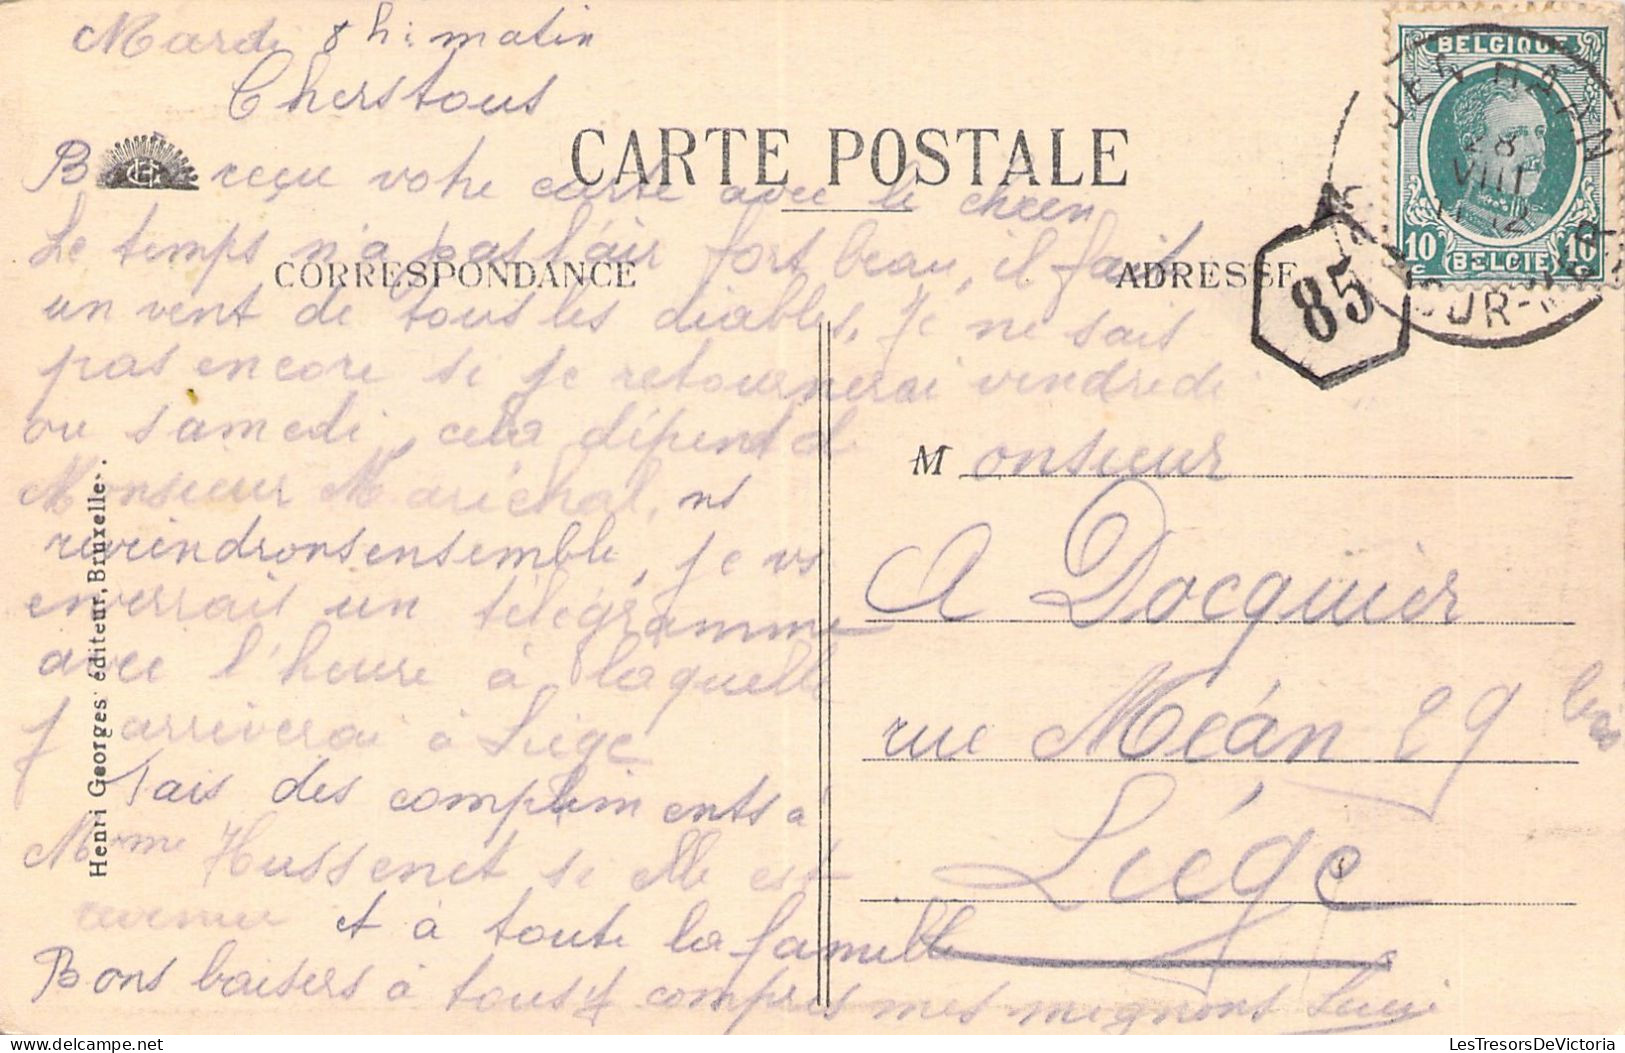 Mardi 8 h: matin
Chers tous
CARTE POSTALE
B reçu votre carte avec le chien
Le temps n'a pas l'air fort beau, il fait
CORRESPONDANCE
ADRESSE
un vent de tous les diables, Je ne sais
pas encore si je retournerai vendredi
ou samedi, cela dépend de
Monsieur Maréchal, ns
reviendrons ensemble, je vs
enverrais un télégramme
avec l'heure à laquelle
j arriverai à Liége
Fais des compliments à
Mme Hussenet si elle est
revenue et à toute la famille
Bons baisers à tous y compris mes mignons
Henri Georges éditeur, Bruxelle.
BELGIQUE
10 10
BELGIE
28
VIII
12
SUR-MER
85
Monsieur
A Docquier
rue Méan 29 bis
Liége
LesTresorsDeVictoria